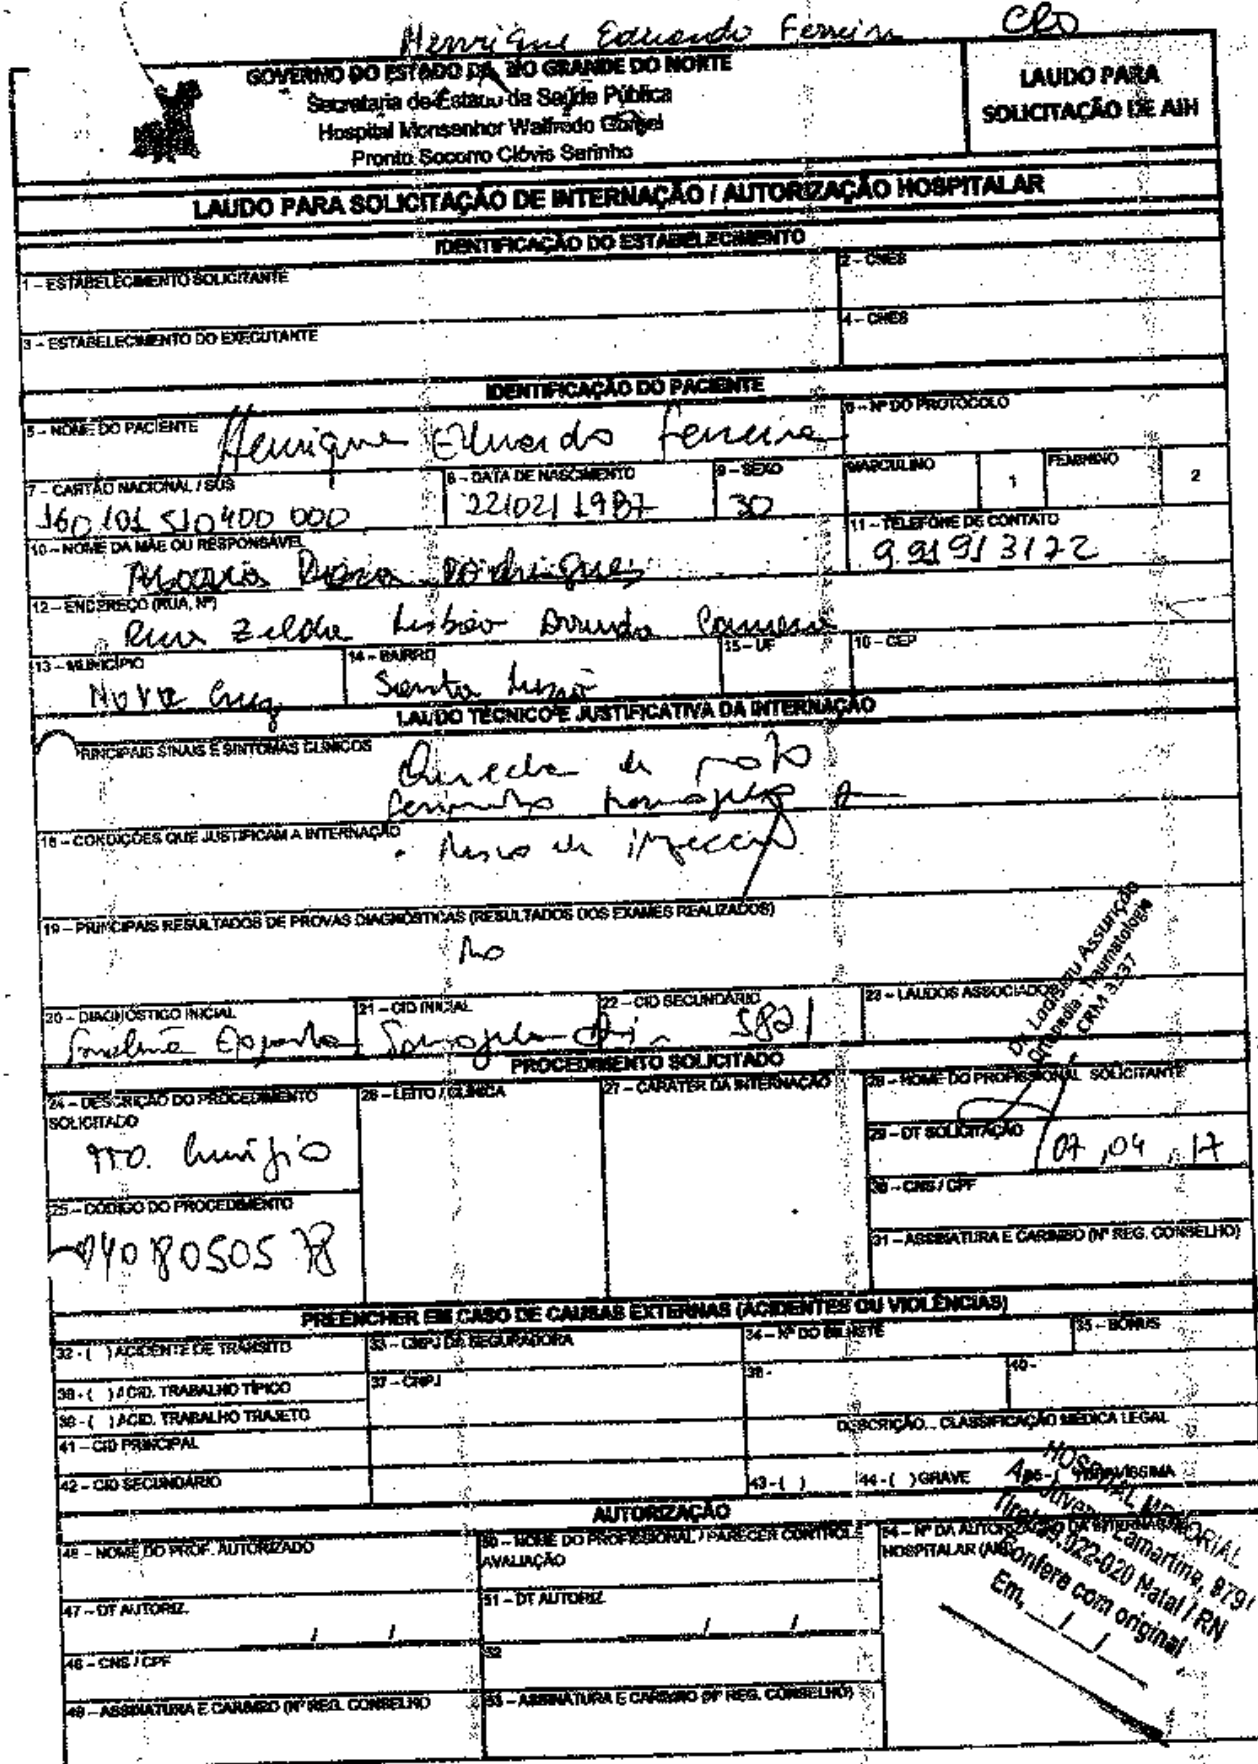 Henrique Eduardo Ferreira CRO
GOVERNO DO ESTADO DA RIO GRANDE DO NORTE
Secretaria de Estado da Saúde Pública
Hospital Monsenhor Walfredo Gurgel
Pronto Socorro Clóvis Sarinho
LAUDO PARA
SOLICITAÇÃO DE AIH
LAUDO PARA SOLICITAÇÃO DE INTERNAÇÃO / AUTORIZAÇÃO HOSPITALAR
IDENTIFICAÇÃO DO ESTABELECIMENTO
1 – ESTABELECIMENTO SOLICITANTE
2 – CNES
3 – ESTABELECIMENTO DO EXECUTANTE
4 – CNES
IDENTIFICAÇÃO DO PACIENTE
5 – NOME DO PACIENTE Henrique Eduardo Ferreira
6 – Nº DO PROTOCOLO
7 – CARTÃO NACIONAL / SUS
160 101 510 400 000
8 – DATA DE NASCIMENTO
22/02/1987
9 – SEXO
30
MASCULINO 1
FEMININO 2
10 – NOME DA MÃE OU RESPONSÁVEL
Rodrigues
11 – TELEFONE DE CONTATO
9.91913122
12 – ENDEREÇO (RUA, Nº)
Rua Zilda Lisboa
13 – MUNICÍPIO
Nova Cruz
14 – BAIRRO
Santa Luzia
15 – UF
16 – CEP
LAUDO TÉCNICO E JUSTIFICATIVA DA INTERNAÇÃO
PRINCIPAIS SINAIS E SINTOMAS CLÍNICOS
Queda de moto
18 – CONDIÇÕES QUE JUSTIFICAM A INTERNAÇÃO
. Risco de infecção
19 – PRINCIPAIS RESULTADOS DE PROVAS DIAGNÓSTICAS (RESULTADOS DOS EXAMES REALIZADOS)
20 – DIAGNÓSTICO INICIAL
21 – CID INICIAL
22 – CID SECUNDÁRIO
S821
23 – LAUDOS ASSOCIADOS
Assunção
Ortopedia - Traumatologia
CRM 3337
PROCEDIMENTO SOLICITADO
24 – DESCRIÇÃO DO PROCEDIMENTO
SOLICITADO
TTO. Cirúrgico
26 – LEITO / CLÍNICA
27 – CARÁTER DA INTERNAÇÃO
28 – NOME DO PROFISSIONAL SOLICITANTE
29 – DT SOLICITAÇÃO
07,04,17
25 – CÓDIGO DO PROCEDIMENTO
0408050578
30 – CNS / CPF
31 – ASSINATURA E CARIMBO (Nº REG. CONSELHO)
PREENCHER EM CASO DE CAUSAS EXTERNAS (ACIDENTES OU VIOLÊNCIAS)
32 - ( ) ACIDENTE DE TRÂNSITO
33 – CNPJ DA SEGURADORA
34 – Nº DO BILHETE
35 – BÔNUS
36 - ( ) ACID. TRABALHO TÍPICO
37 – CNPJ
38 -
40 -
38 - ( ) ACID. TRABALHO TRAJETO
DESCRIÇÃO... CLASSIFICAÇÃO MÉDICA LEGAL
41 – CID PRINCIPAL
42 – CID SECUNDÁRIO
43 - ( )
44 - ( ) GRAVE
AUTORIZAÇÃO
46 – NOME DO PROF. AUTORIZADO
50 – NOME DO PROFISSIONAL / PARECER CONTROLE
AVALIAÇÃO
54 – Nº DA AUTORIZAÇÃO DA INTERNAÇÃO
HOSPITALAR (AIH)
47 – DT AUTORIZ.
/ /
51 – DT AUTORIZ.
/ /
48 – CNS / CPF
52
49 – ASSINATURA E CARIMBO (Nº REG. CONSELHO
53 – ASSINATURA E CARIMBO (Nº REG. CONSELHO)
HOSPITAL MEMORIAL
Av. Juvenal Lamartine, 979
Tirol 59.022-020 Natal / RN
Confere com original
Em, __/__/__